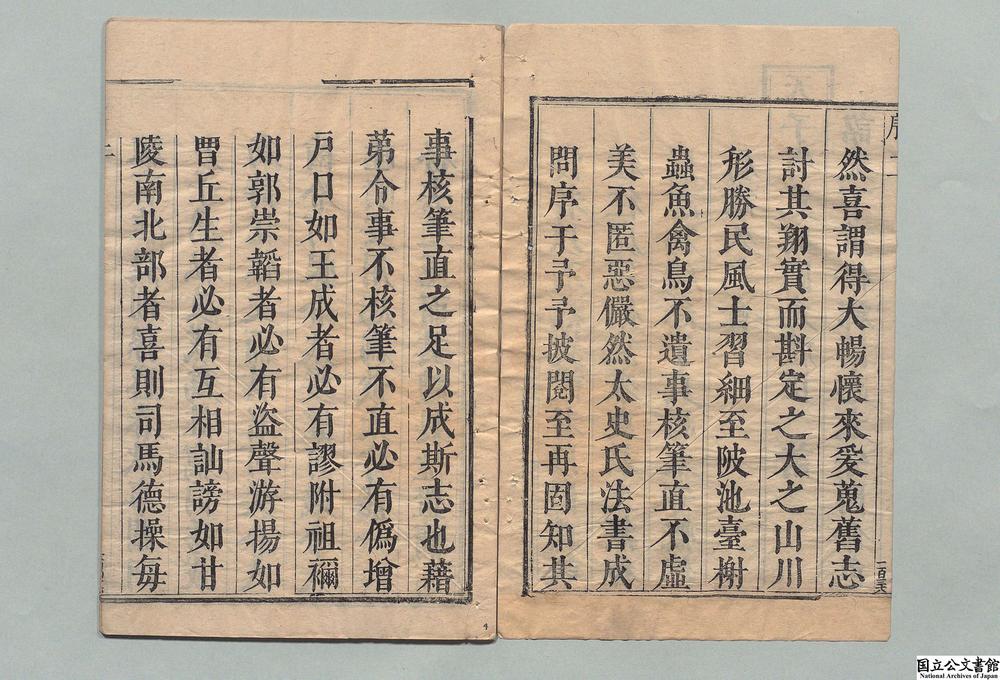 序二
然喜謂得大暢懷來爰蒐舊志
討其翔實而斟定之大之山川
形勝民風士習細至陂池臺榭
蟲魚禽鳥不遺事核筆直不虛
美不匿惡儼然太史氏法書成
問序于予予披閱至再固知其
事核筆直之足以成斯志也藉
苐令事不核筆不直必有僞增
戸口如王成者必有謬附祖禰
如郭崇韜者必有盜聲游揚如
曺丘生者必有互相訕謗如甘
陵南北部者喜則司馬德操每
4
国立公文書館
National Archives of Japan